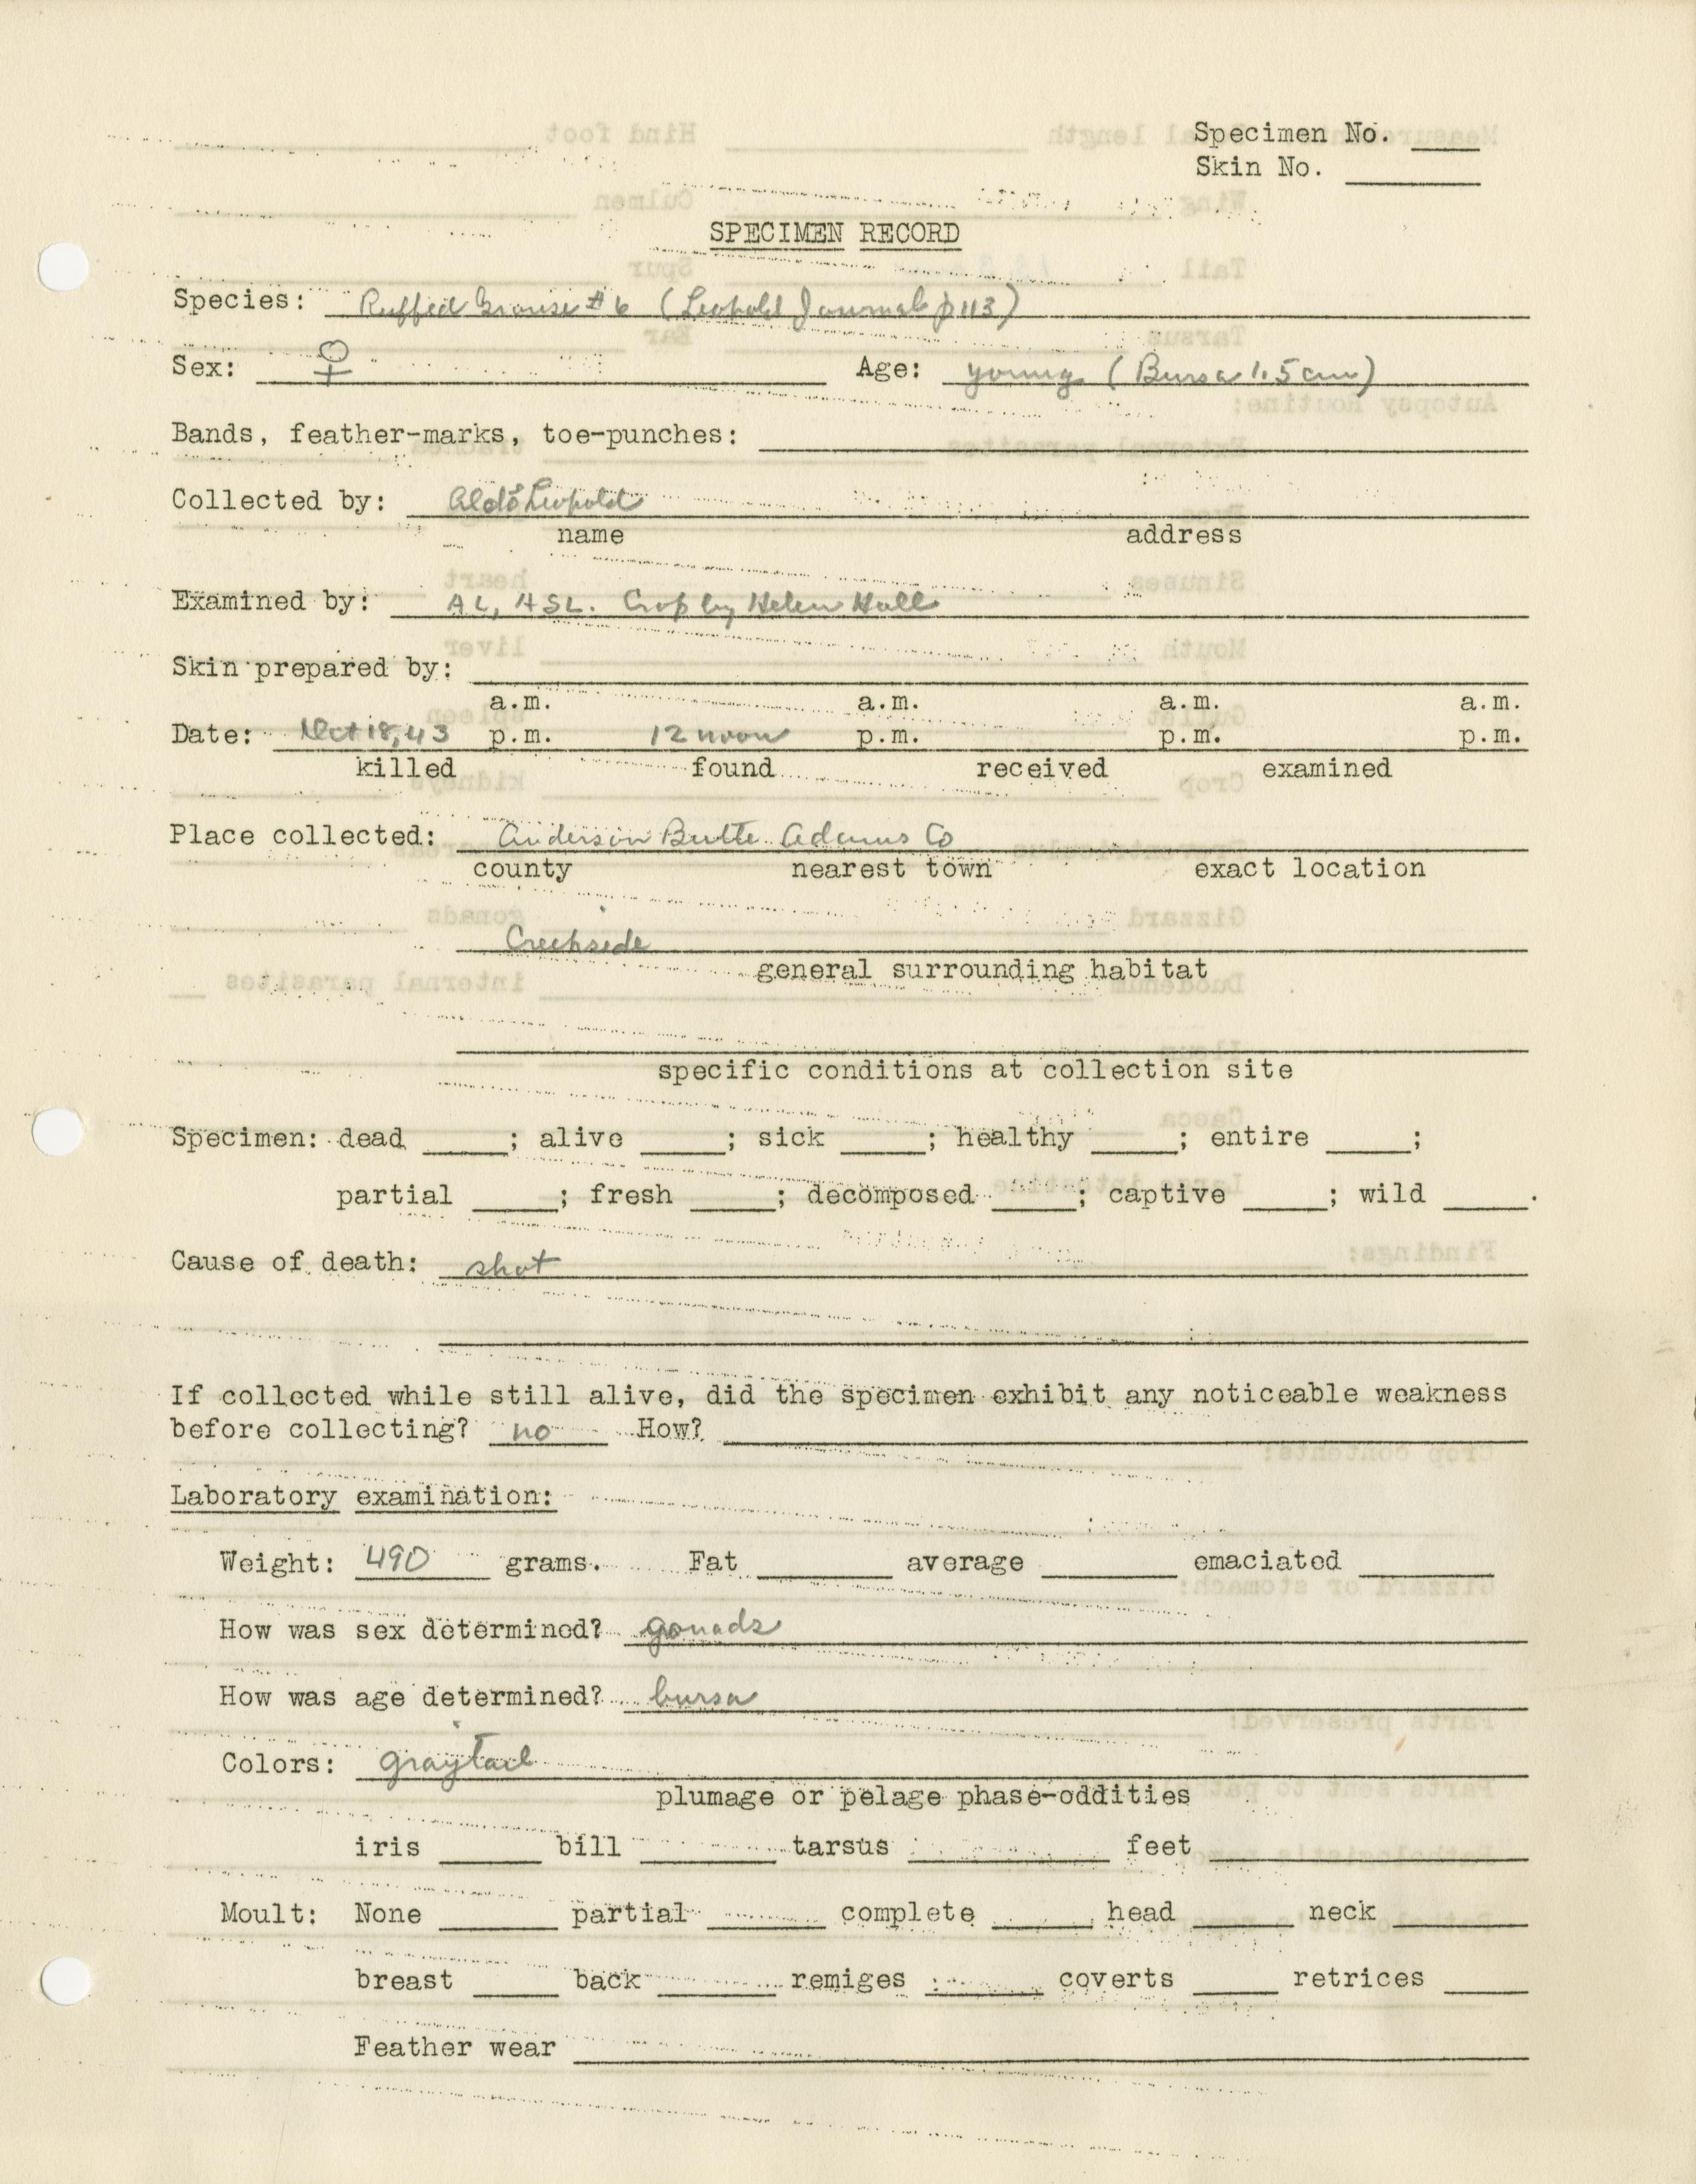 Specimen No. ____
Skin No. ____
SPECIMEN RECORD
Species: Ruffed Grouse #6 (Leopold Journal p 113)
Sex: ♀ Age: young (Bursa 1.5 cm)
Bands, feather-marks, toe-punches:
Collected by: Aldo Leopold
name address
Examined by: AL, HSL. Crop by Helen Hall
Skin prepared by:
a.m. a.m. a.m. a.m.
Date: Oct 18, 43 p.m. 12 noon p.m. p.m. p.m.
killed found received examined
Place collected: Anderson Butte Adams Co
county nearest town exact location
Creekside
general surrounding habitat
specific conditions at collection site
Specimen: dead ____; alive ____; sick ____; healthy ____; entire ____;
partial ____; fresh ____; decomposed ____; captive ____; wild ____.
Cause of death: shot
If collected while still alive, did the specimen exhibit any noticeable weakness
before collecting? no How?
Laboratory examination:
Weight: 490 grams. Fat ____ average ____ emaciated ____
How was sex determined? gonads
How was age determined? bursa
Colors: gray tail
plumage or pelage phase-oddities
iris ____ bill ____ tarsus ____ feet ____
Moult: None ____ partial ____ complete ____ head ____ neck ____
breast ____ back ____ remiges ____ coverts ____ retrices ____
Feather wear